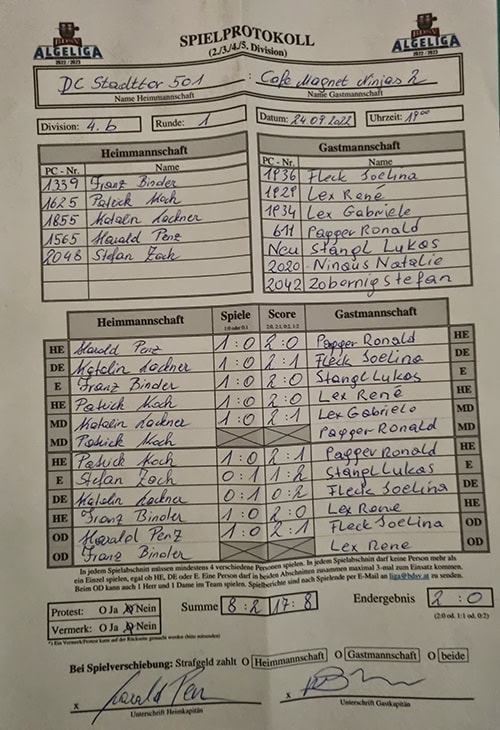 BDSV
ALGELIGA
2022/2023
SPIELPROTOKOLL
(2./3./4./5. Division)
BDSV
ALGELIGA
2022/2023
DC Stadttor 501 : Cafe Magnet Ninjas 2
Name Heimmannschaft Name Gastmannschaft
Division: 4.b Runde: 1 Datum: 24.09.2022 Uhrzeit: 19⁰⁰
Heimmannschaft Gastmannschaft
PC - Nr. Name PC - Nr. Name
1339 Franz Binder 1936 Fleck Joelina
1625 Patrick Koch 1929 Lex René
1855 Natalin Lackner 1934 Lex Gabriele
1565 Harald Penz 611 Papper Ronald
2048 Stefan Zach Neu Stangl Lukas
2020 Ninaus Natalie
2042 Zobernig Stefan
Heimmannschaft Spiele Score Gastmannschaft
1:0 oder 0:1 2:0, 2:1, 0:2, 1:2
HE Harald Penz 1:0 2:0 Papper Ronald HE
DE Natalin Lackner 1:0 2:1 Fleck Joelina DE
E Franz Binder 1:0 2:0 Stangl Lukas E
HE Patrick Koch 1:0 2:0 Lex René HE
MD Natalin Lackner 1:0 2:1 Lex Gabriele MD
MD Patrick Koch Papper Ronald MD
HE Patrick Koch 1:0 2:1 Papper Ronald HE
E Stefan Zach 0:1 1:2 Stangl Lukas E
DE Natalin Lackner 0:1 0:2 Fleck Joelina DE
HE Franz Binder 1:0 2:0 Lex René HE
OD Harald Penz 1:0 2:1 Fleck Joelina OD
OD Franz Binder Lex René OD
In jedem Spielabschnitt müssen mindestens 4 verschiedene Personen spielen. In jedem Spielabschnitt darf keine Person mehr als
ein Einzel spielen, egal ob HE, DE oder E. Eine Person darf in beiden Abschnitten zusammen maximal 3-mal zum Einsatz kommen.
Beim OD kann auch 1 Herr und 1 Dame im Team spielen. Spielberichte sind nach Spielende per E-Mail an liga@bdsv.at zu senden.
Protest: O Ja O Nein Summe 8:2 17:8 Endergebnis 2:0
Vermerk: O Ja O Nein (2:0 od. 1:1 od. 0:2)
*) Ein Vermerk/Protest kann auf der Rückseite gemacht werden (bitte umwenden)
Bei Spielverschiebung: Strafgeld zahlt O Heimmannschaft O Gastmannschaft O beide
x Harald Penz x
Unterschrift Heimkapitän Unterschrift Gastkapitän